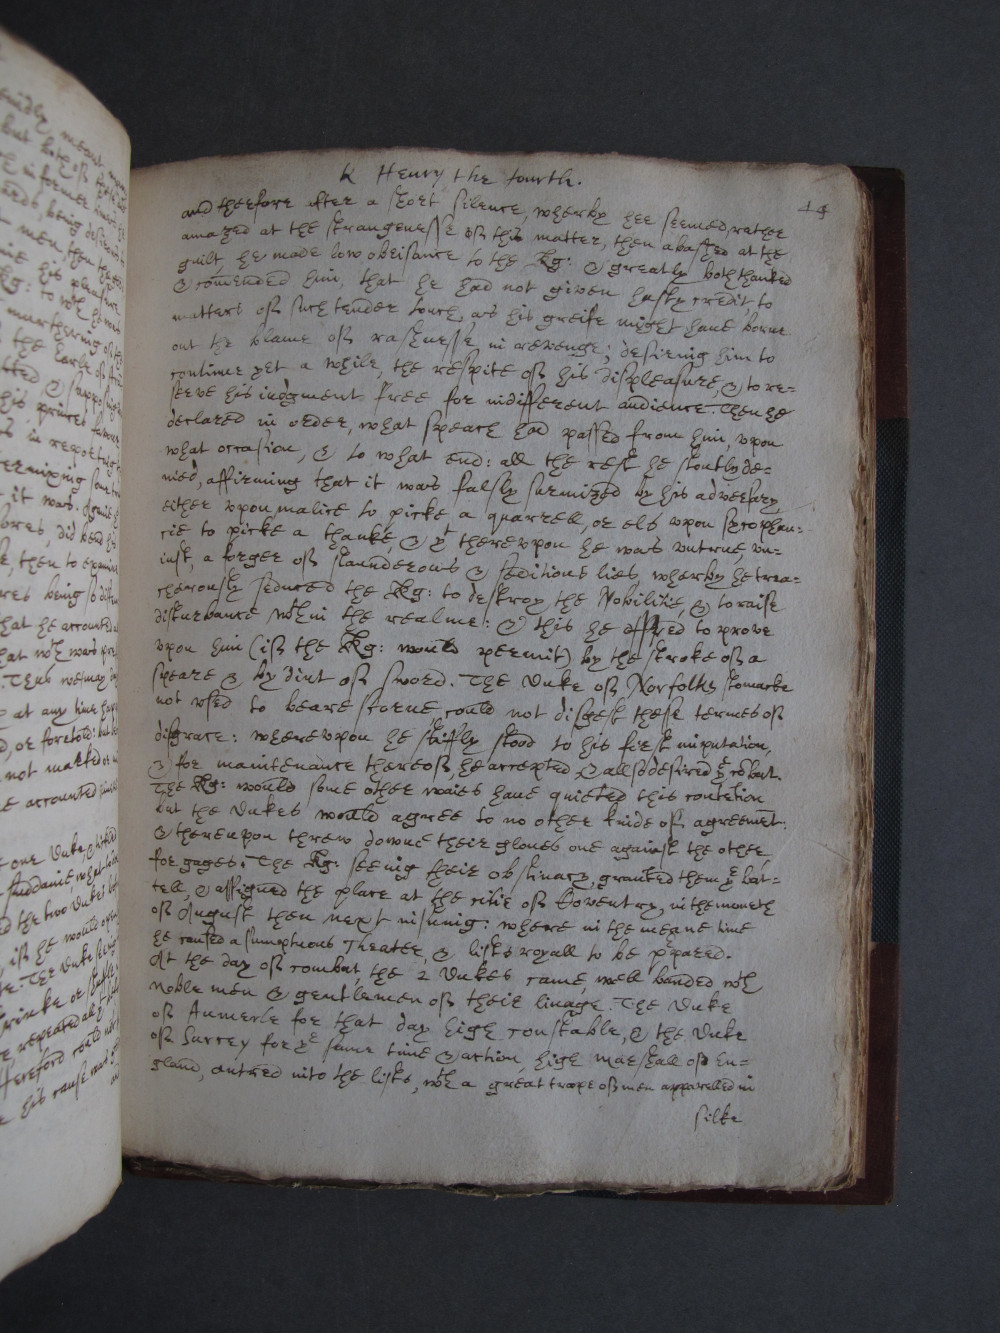 K Henry the fourth.
14
and therfore after a short silence, wherby hee seemed rather
amazed at the strangenesse of this matter, then abashed at the
guilt, he made low obeisance to the Kg: & greatly both thanked
& comended him, that he had not given hasty credit to
matters of such tender touch, as his greife might haue borne
out the blame of rashnesse in revenge; desiring him to
continue yet a while, the respite of his displeasure, & to re=
serve his iudgment free for indifferent audience. Then he
declared in order, what speach had passed from him, vpon
what occasion, & to what end: all the rest he stoutly de=
nied, affirming that it was falsly surmized by his adversary,
either vpon malice to picke a quarrell, or els vpon sycophan=
cie to picke a thanke, & yt therevpon he was vntrue, vn=
iust, a forger of slaunderous & seditious lies, wherby he trea=
cherously seduced the Kg: to destroy the Nobilitie, & to raise
disturbance wthin the realme: & this he offred to prove
vpon him (if the Kg: would permit) by the stroke of a
speare & by dint of sword. The Duke of Norfolks stomacke
not vsed to beare scorne, could not disgest these termes of
disgrace: wherevpon he stiffly stood to his first imputation,
& for maintenance thereof, he accepted & also desired ye cobat.
The Kg: would some other waies haue quieted this contetion
but the Dukes would agree to no other kinde of agreement:
& therevpon threw downe their gloues one against the other,
for gages. The Kg: seeing their obstinacy, graunted them ye bat=
tell, & assigned the place at the citie of Coventry, in the moneth
of August then next insuing: where in the meane time
he caused a sumptuous Theater, & lists royall to be ppared.
At the day of combat, the 2 Dukes came, well banded wth
noble men & gentlemen of their linage. The Duke
of Aumerle for that day high constable, & the Duke
of Surrey for ye same time & action, high marshall of En=
gland, entred into the lists, wth a great trope of men apparelled in
silke